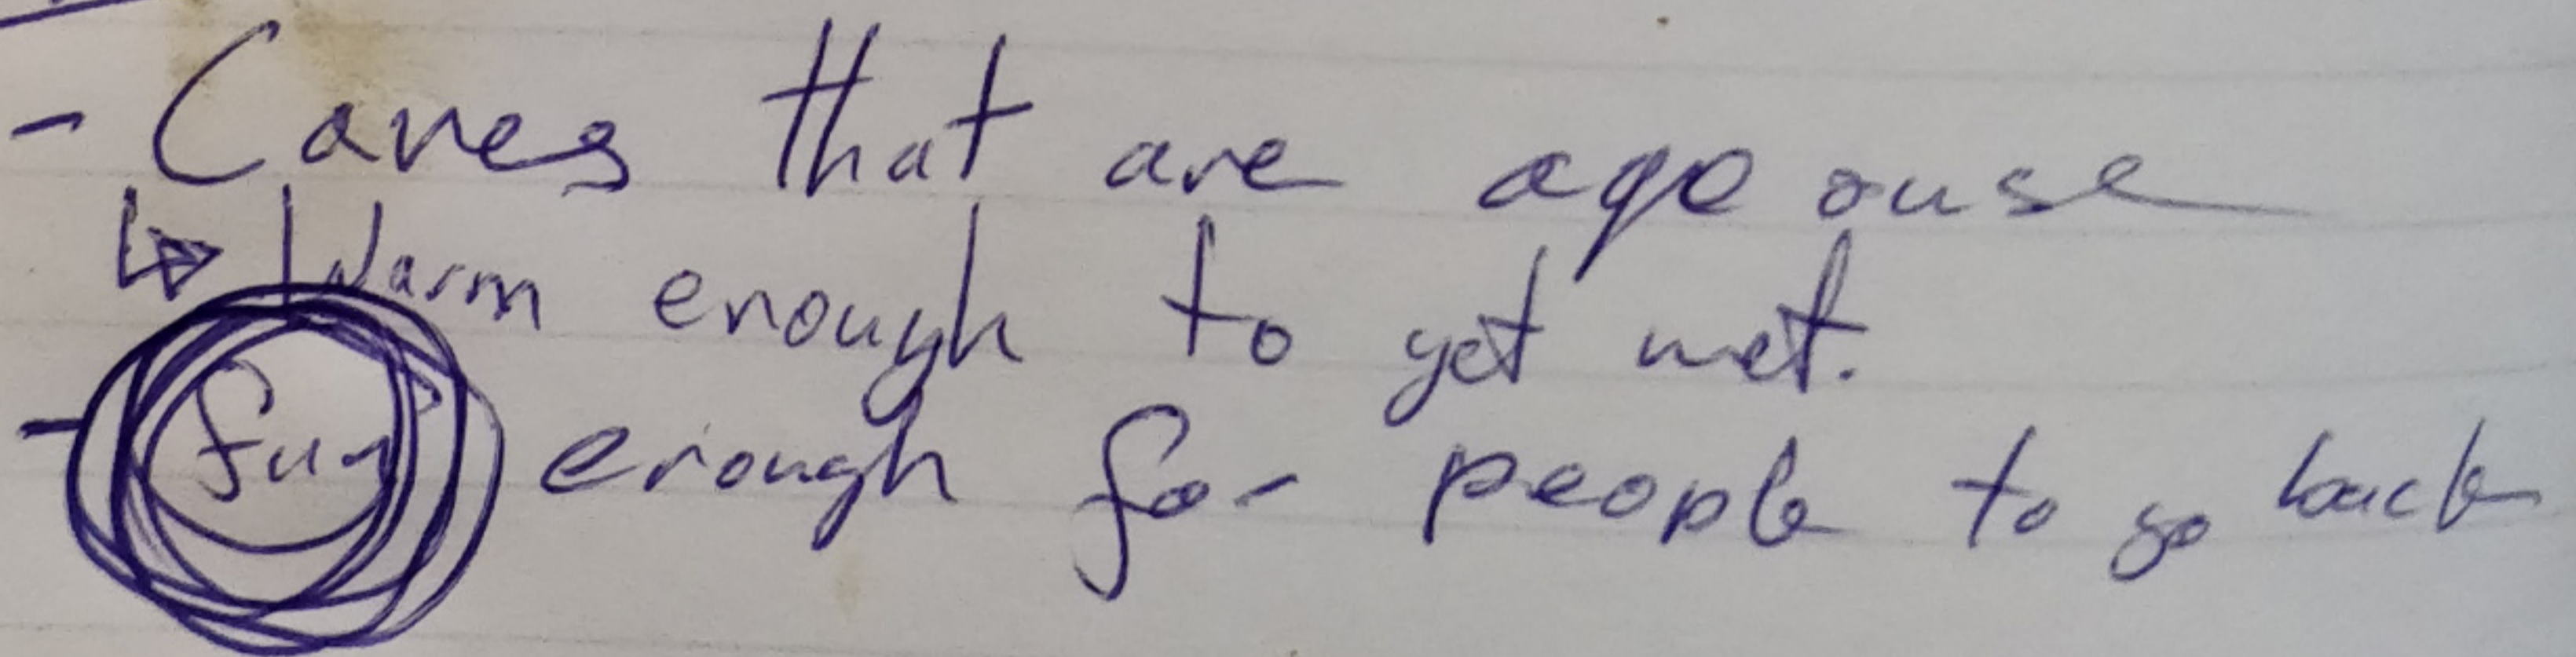 - Caves that are aqoouse
↳ Warm enough to get wet.
- fun enough for people to go back